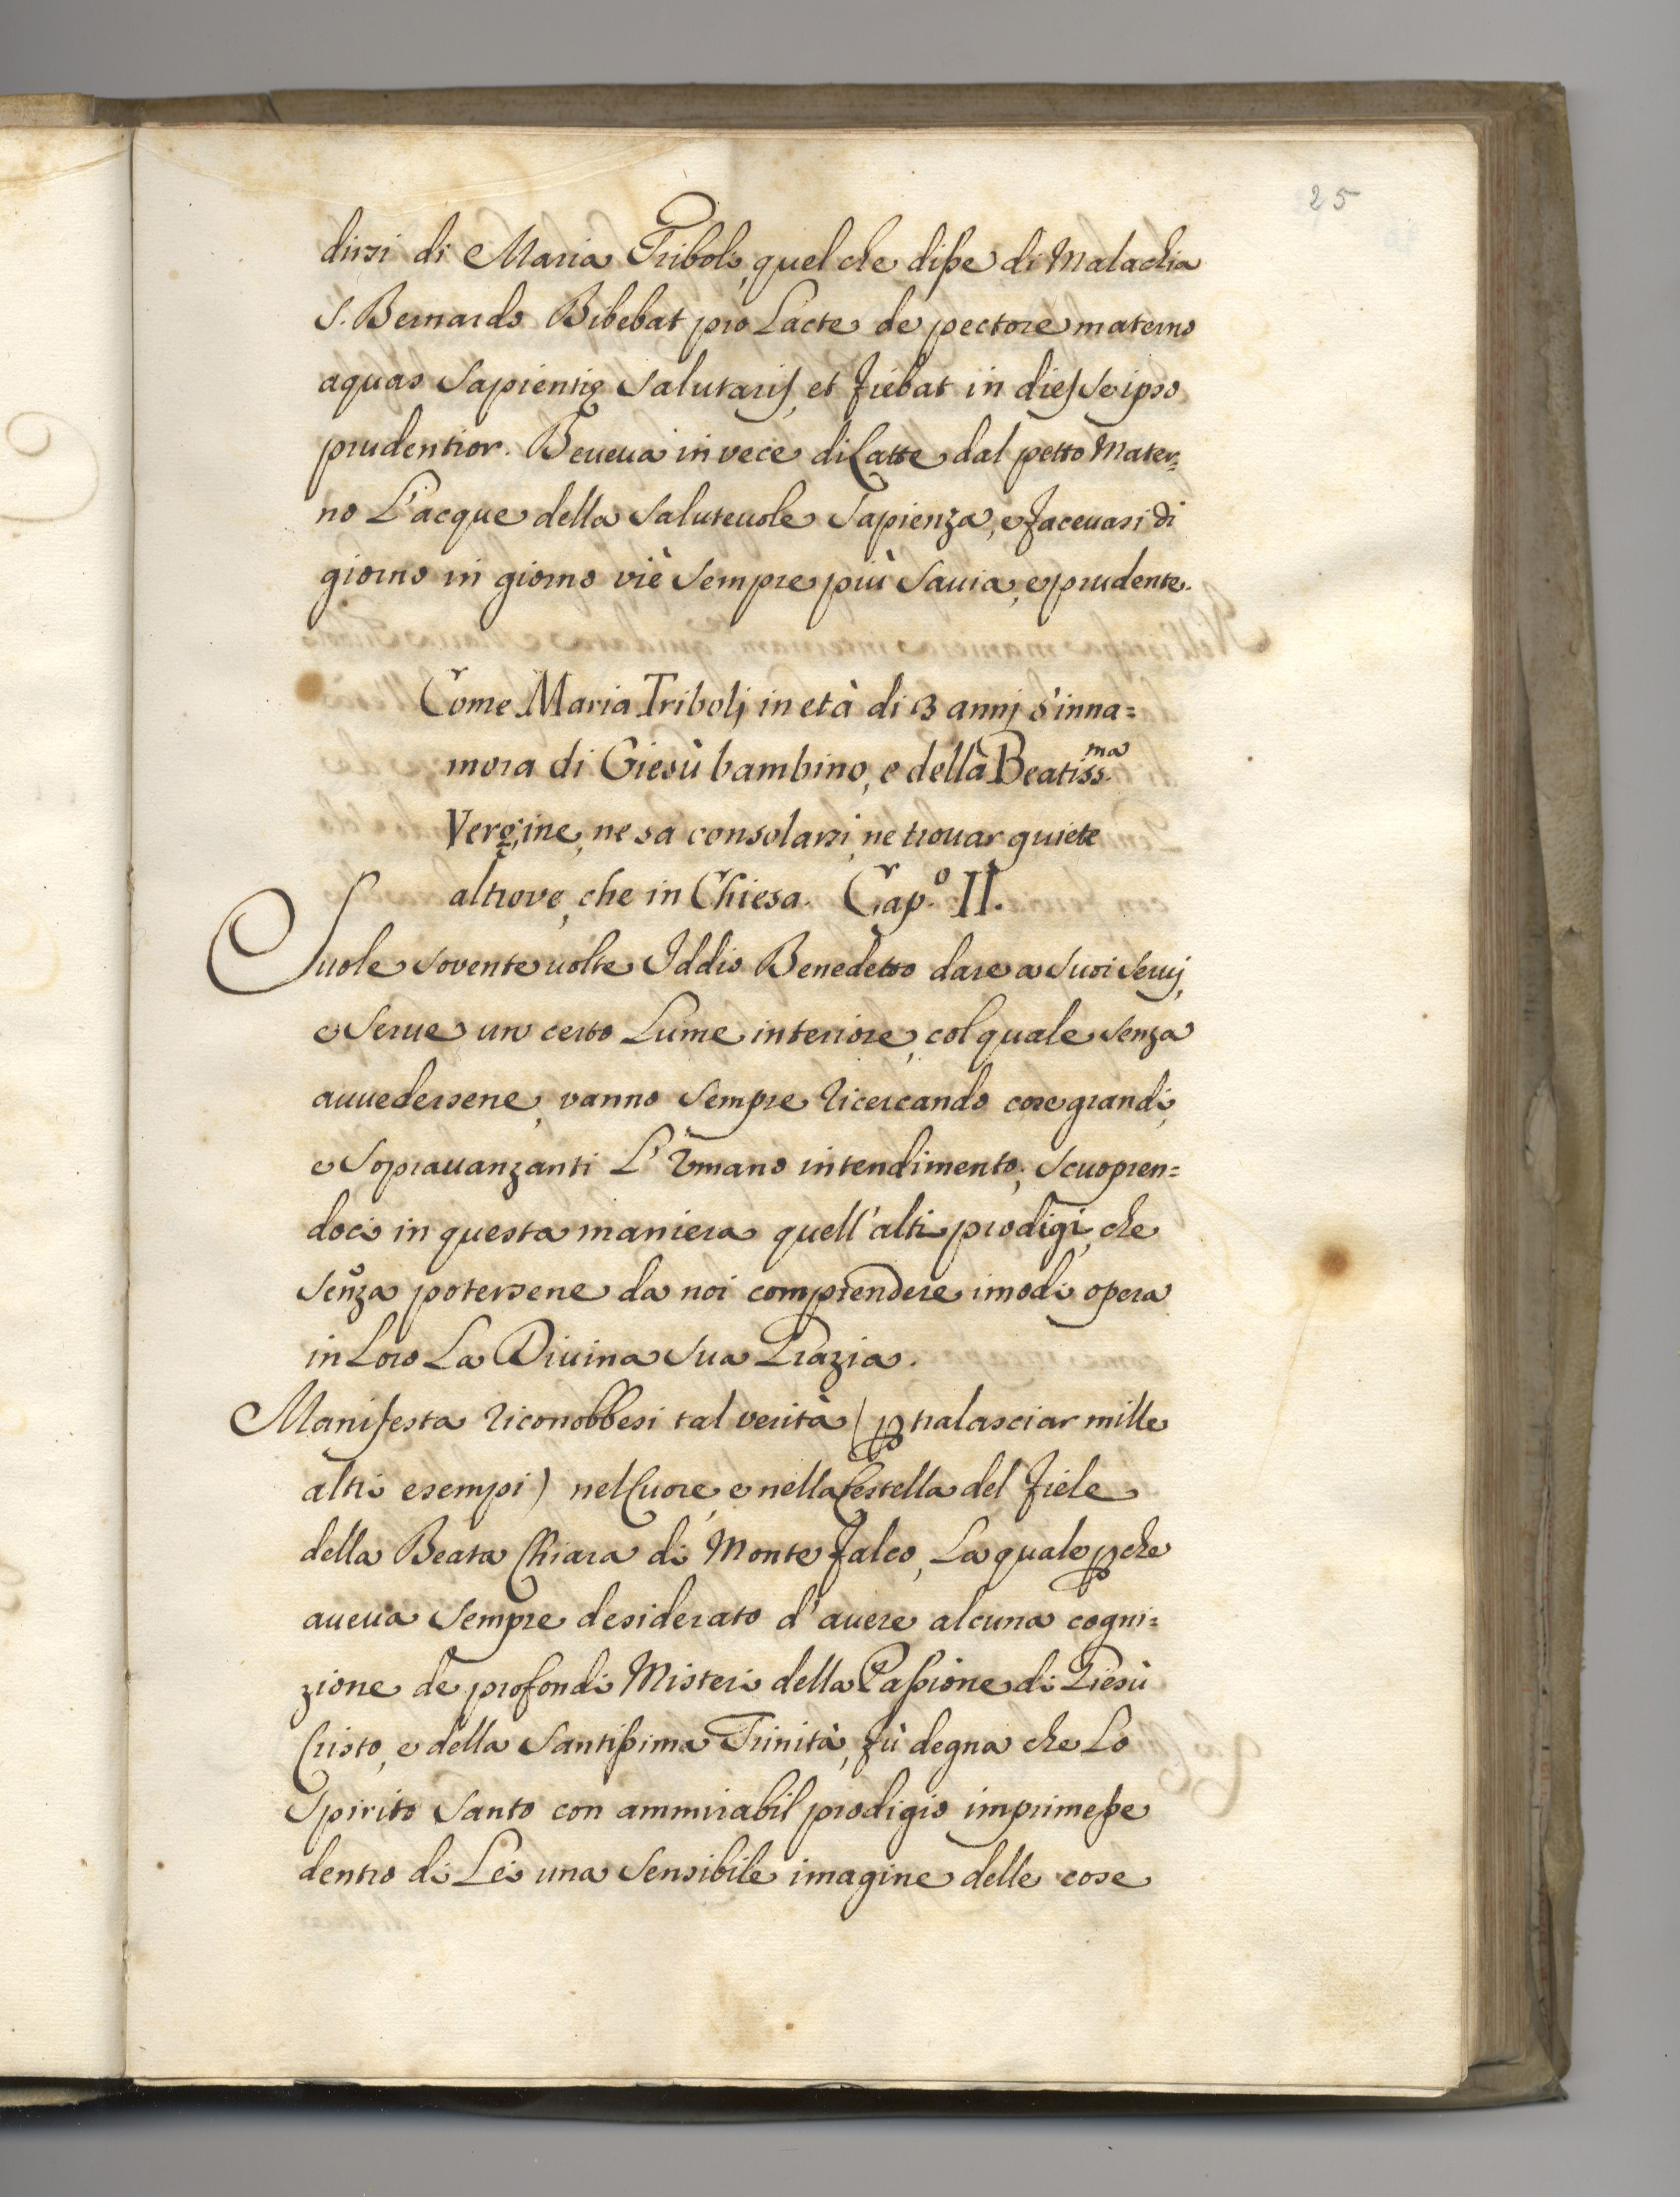 25
dirsi di Maria Triboli, quel che disse di Malachia
S. Bernardo Bibebat pro Lacte de pectore materno
aquas Sapientię Salutaris, et fiebat in dies se ipso
prudentior. Beueua in vece di Latte dal petto Mater=
no L'acque della Saluteuole Sapienza, e faceuasi di
giorno in giorno viè sempre più Sauia, e prudente.
Come Maria Triboli in età di 3 anni s'inna=
mora di Giesù bambino, e della Beatiss.ma
Vergine, ne sa consolarsi, ne trouar quiete
altrove, che in Chiesa. Cap.o II.
Suole Sovente uolte Iddio Benedetto dare a Suoi Serui,
e Serue un certo Lume interiore, col quale senza
auuedersene, vanno sempre ricercando cose grandi,
e Soprauanzanti L'Vmano intendimento; Scuopren=
doci in questa maniera quell'alti prodigi, che
senza potersene da noi comprendere i modi opera
in Loro La Diuina Sua Grazia.
Manifesta riconobbesi tal verità (p tralasciar mille
altri esempi) nel Cuore, e nella Cestella del fiele
della Beata Chiara di Monte Falco, La quale pche
aueua sempre desiderato d'auere alcuna cogni=
zione de profondi Misteri della Passione di Giesù
Cristo, e della Santissima Trinità, fù degna che Lo
Spirito Santo con ammirabil prodigio imprimesse
dentro di Lei una Sensibile imagine delle cose